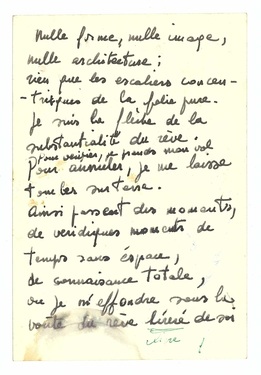 Nulle forme, nulle image,
nulle architecture ;
rien que les escaliers concen-
-triques de la folie pure.
Je suis la flèche de la
substantialité du rêve.
Pour vérifier, je prends mon vol
Pour annuler, je me laisse
tomber sur terre.
Ainsi passent des moments,
de véridiques moments de
temps sans espace,
de connaissance totale,
où je m'effondre sous la
voûte du rêve libéré de soi
!